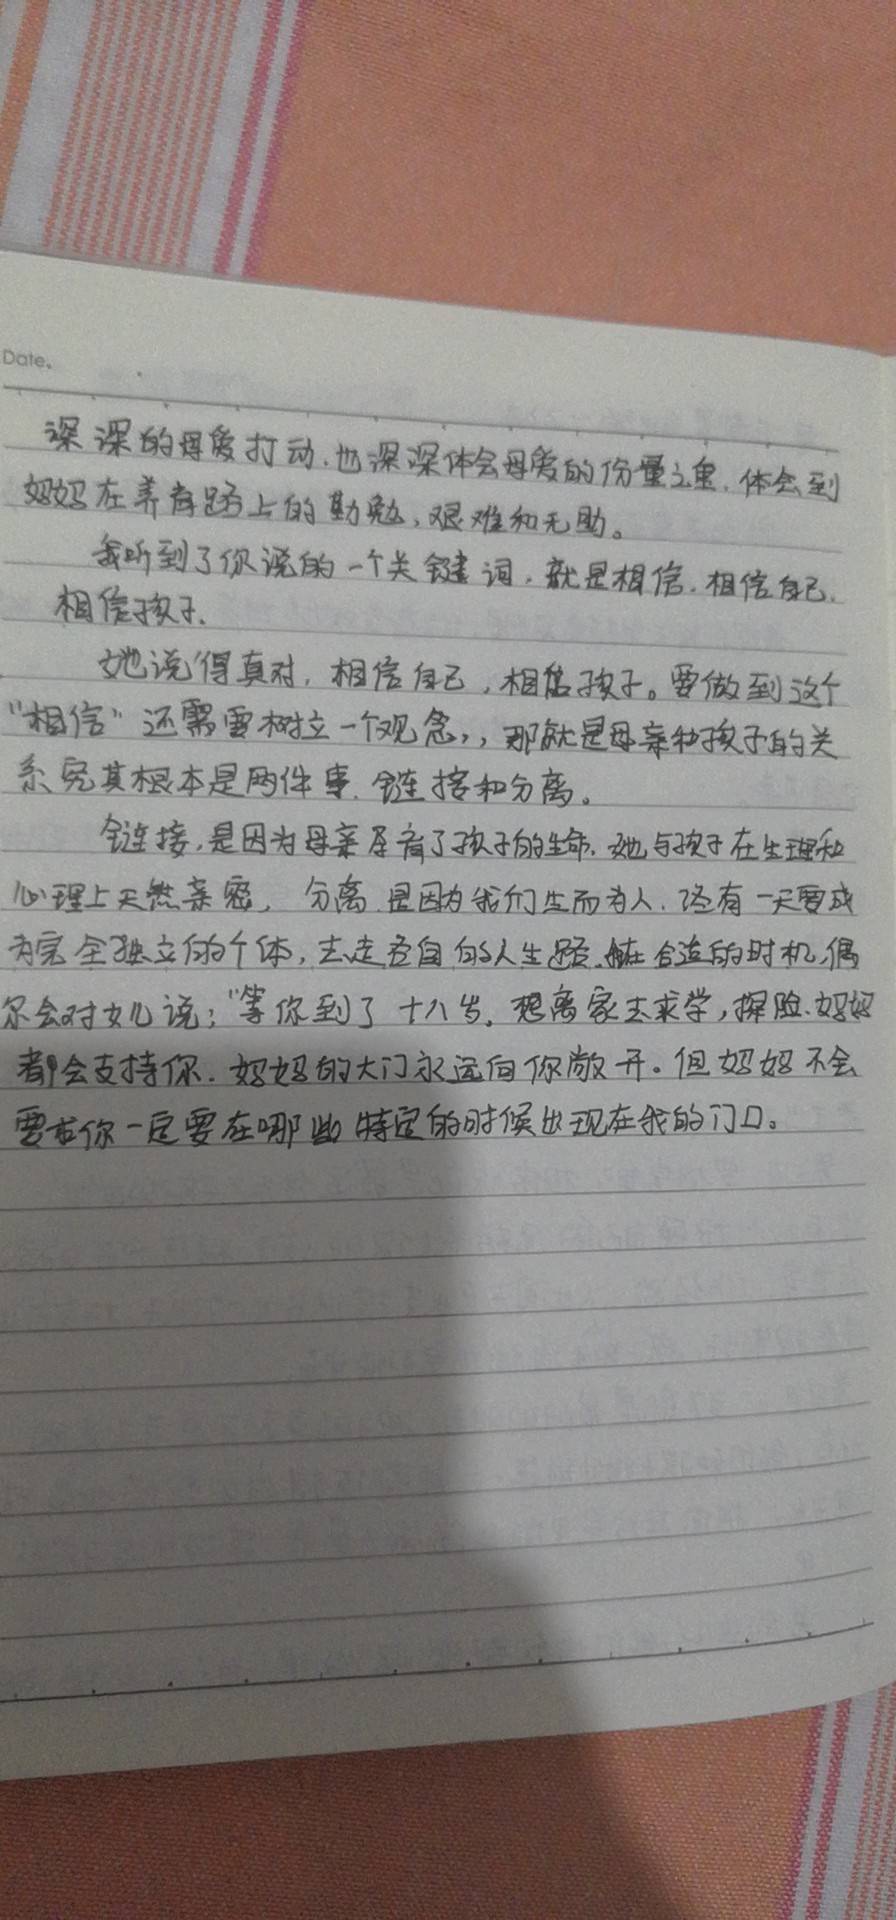 Date.
深深的母爱打动.也深深体会母爱的份量之重.体会到
妈妈在养育路上的勤勉,艰难和无助。
我听到了你说的一个关键词.就是相信.相信自己.
相信孩子.
她说得真对,相信自己,相信孩子。要做到这个
"相信"还需要树立一个观念,,那就是母亲和孩子的关
系究其根本是两件事.链接和分离。
链接,是因为母亲孕育了孩子的生命.她与孩子在生理和
心理上天然亲密, 分离.是因为我们生而为人.终有一天要成
为完全独立的个体,去走各自的人生路.在合适的时机,偶
尔会对女儿说:"等你到了十八岁.想离家去求学,探险.妈妈
都会支持你.妈妈的大门永远向你敞开。但妈妈不会
要求你一定要在哪些特定的时候出现在我的门口。